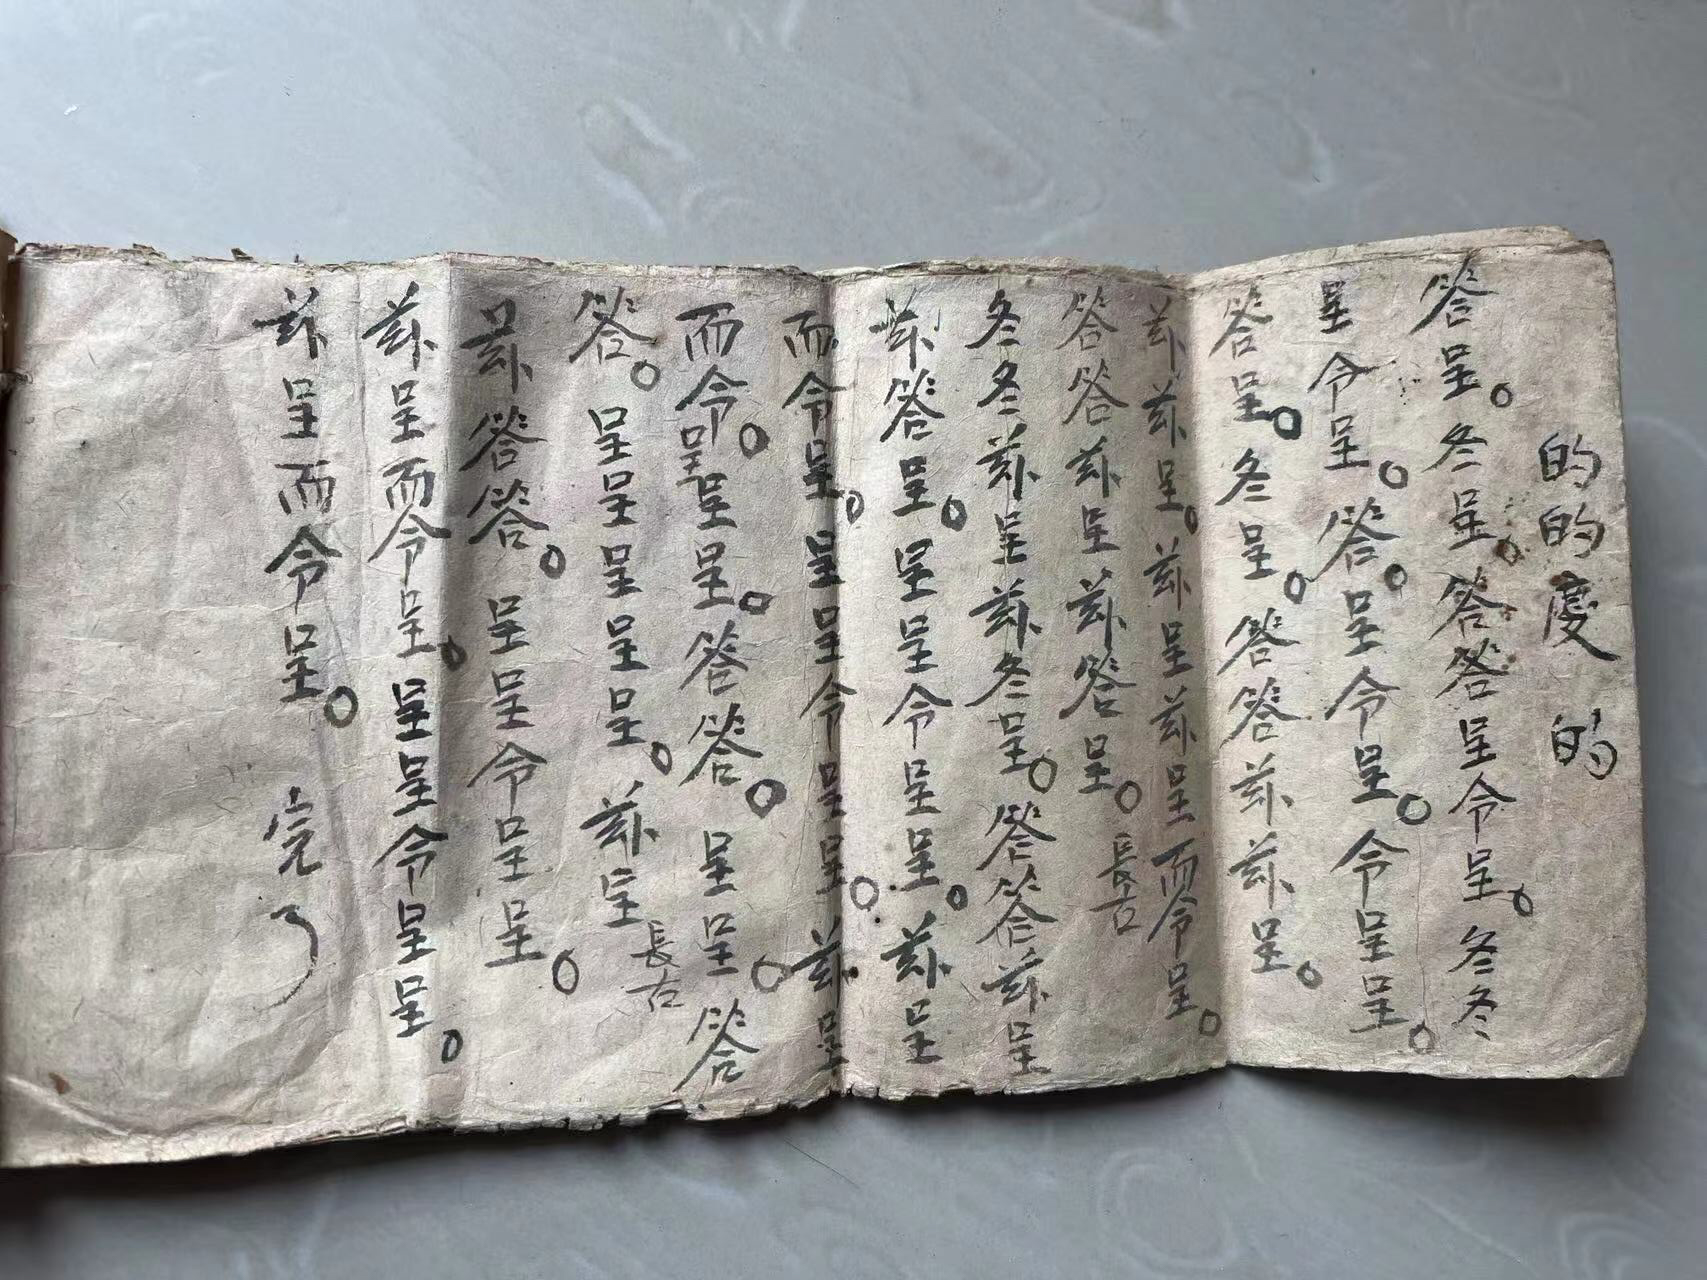 的的度的
答呈。冬呈。答答呈令呈。冬冬
呈令呈。答。呈令呈。令呈呈。
答呈。冬呈。答答茲茲呈。
茲茲呈。茲呈茲呈而令呈。
答答茲呈茲答呈。長古
冬冬茲呈茲冬呈。答答茲呈
茲答呈。呈呈令呈呈。茲呈
而令呈。呈呈令呈呈。茲呈
而令。呈呈呈。答答。呈呈。答
答。呈呈呈呈呈。茲呈長古
茲答答。呈呈令呈呈。
茲呈而令呈。呈呈令呈呈。
茲呈而令呈。完了